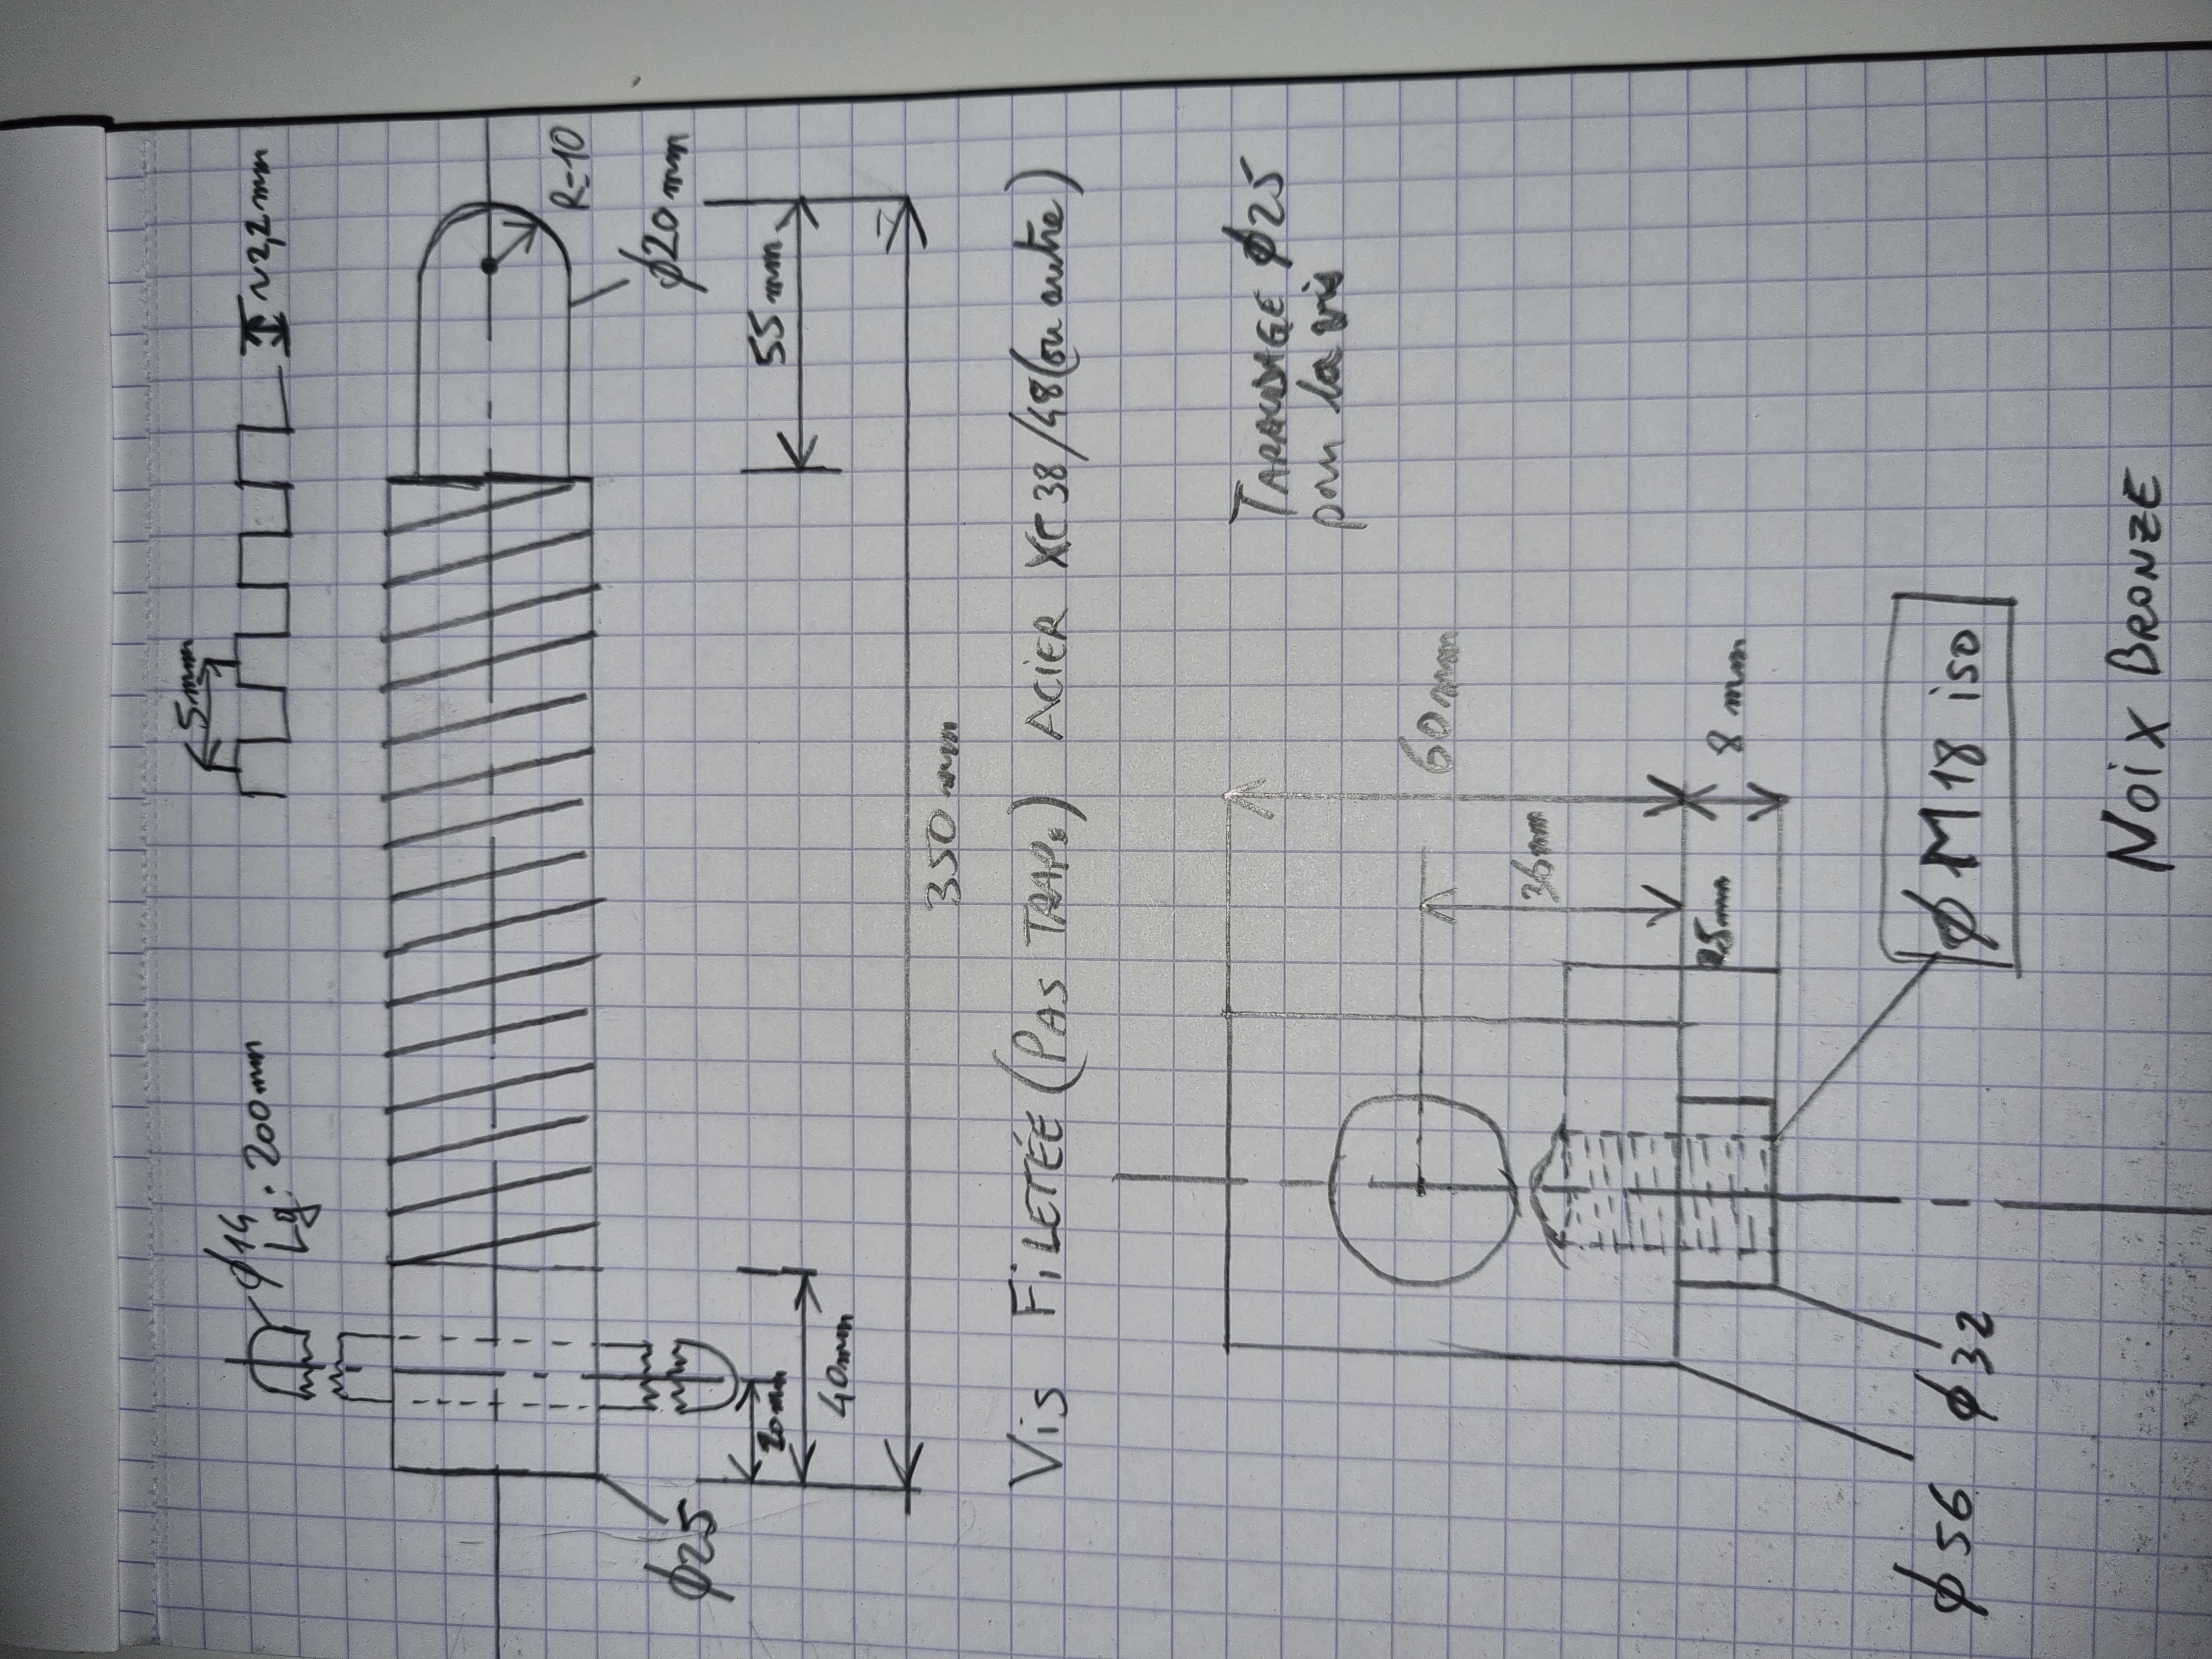 5mm
~2,2mm
φ14
Lg: 200mm
R=10
φ20mm
55mm
φ25
20mm
40mm
350mm
VIS FILETÉE (PAS TRAP.) ACIER XC38/48 (ou autre)
TARAUDAGE φ25
pour la vis
60mm
36mm
8mm
25mm
φ M18 iso
φ56
φ32
NOIX BRONZE